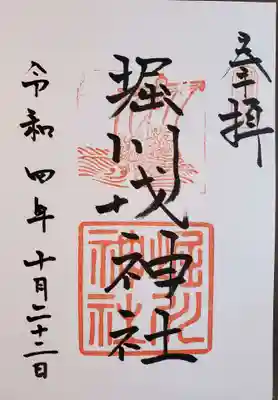 奉拝
堀川戎神社
堀川
神社
令和四年十月二十二日